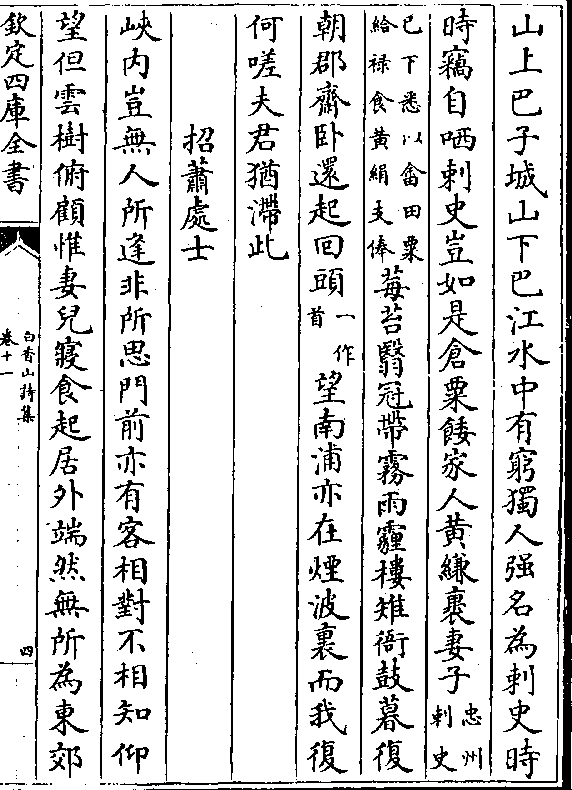 山上巴子城山下巴江水中有窮獨人强名為刺史時
時竊自哂刺史豈如是倉粟餧家人黄縑裹妻子忠州刺史
已下悉以畬田粟給禄食黄絹支俸莓苔翳冠帶霧雨霾樓雉衙鼓暮復
朝郡齋卧還起回頭一作首望南浦亦在煙波裏而我復
何嗟夫君猶滯此
招蕭處士
峽内豈無人所逢非所思門前亦有客相對不相知仰
望但雲樹俯顧惟妻兒寢食起居外端然無所為東郊
欽定四庫全書
白香山詩集
卷十一
四